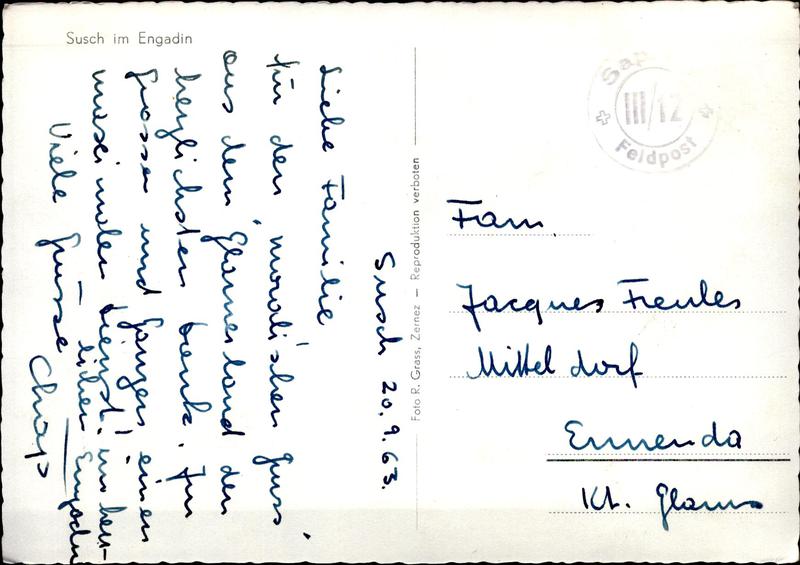 Susch im Engadin
Susch 20.9.63.
Liebe Familie
für den "moralischen Gruss"
aus dem Glarnerland den
herzlichsten Dank. Im
grossen und ganzen einen
maximalen Dienst! im herr-
lichen Engadin
Viele Grüsse
Foto R. Grass, Zernez – Reproduktion verboten
Sap
III/12
Feldpost
Fam.
Jacques Freuler
Mitteldorf
Ennenda
Kt. Glarus